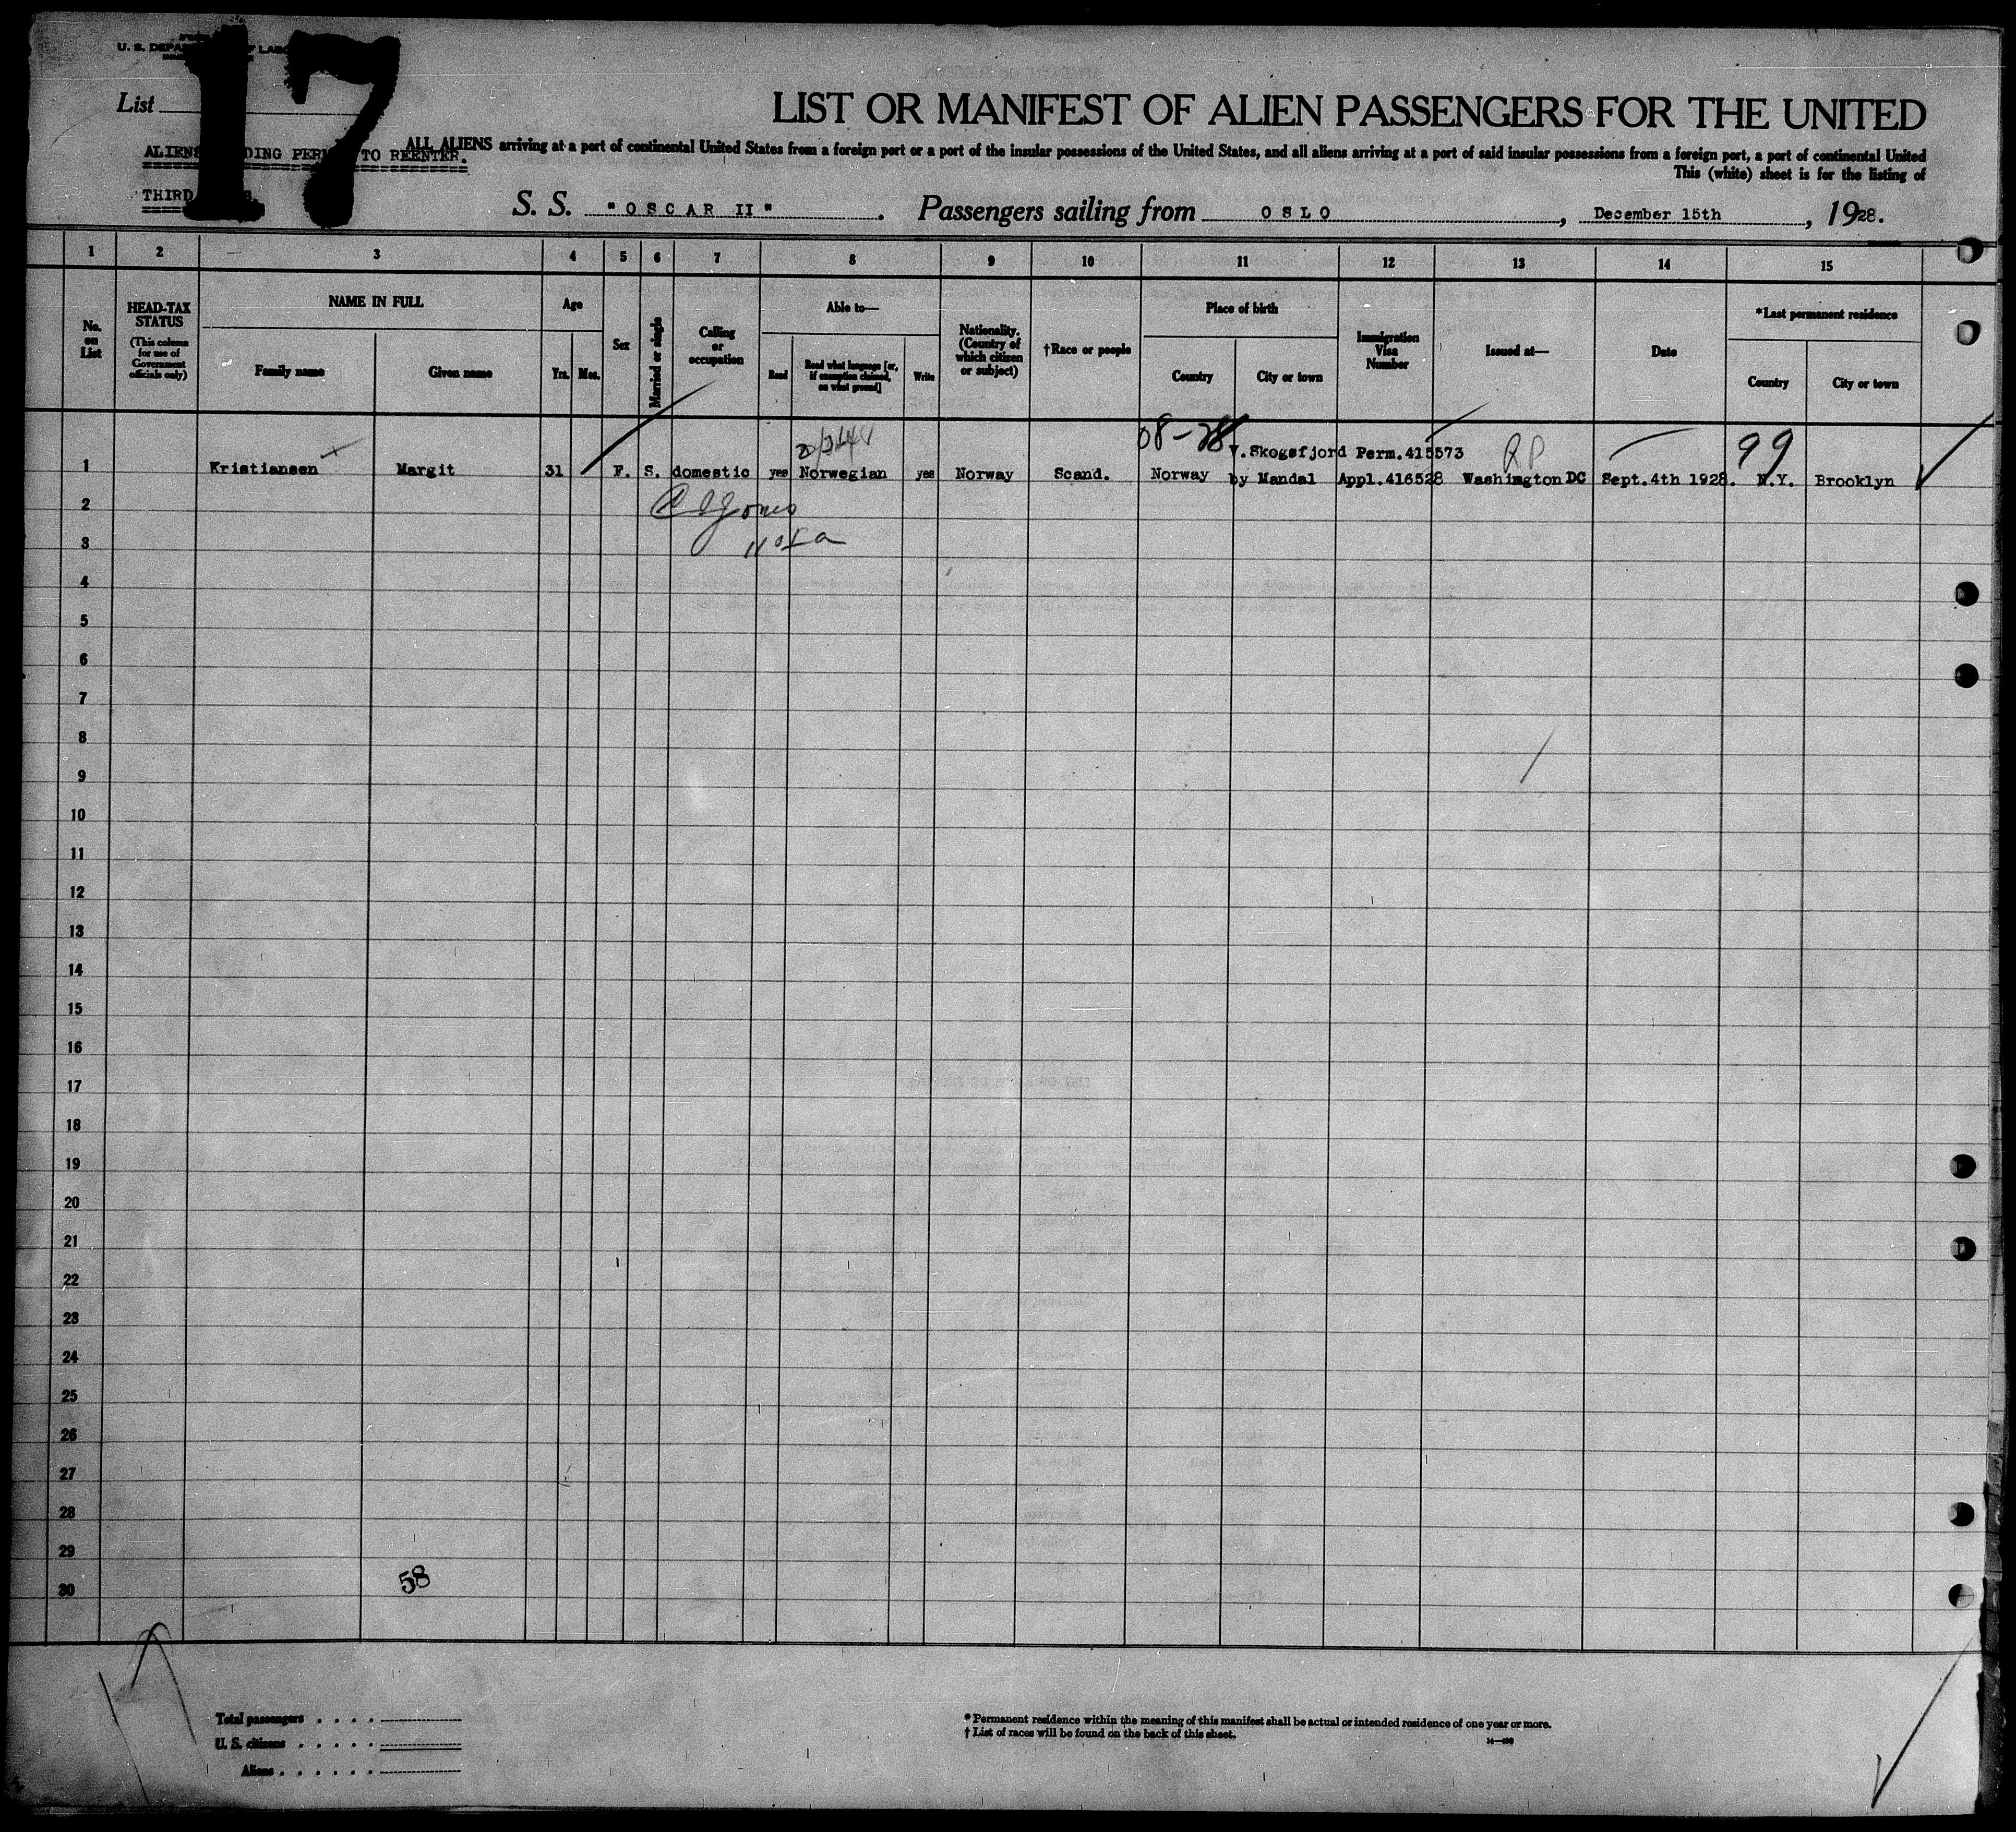 17
U. S. DEPA LABO
List
LIST OR MANIFEST OF ALIEN PASSENGERS FOR THE UNITED
ALL ALIENS arriving at a port of continental United States from a foreign port or a port of the insular possessions of the United States, and all aliens arriving at a port of said insular possessions from a foreign port, a port of continental United
ALIENS DING PER TO REENTER.
This (white) sheet is for the listing of
THIRD
S. S. "OSCAR II". Passengers sailing from OSLO, December 15th, 1928.
1 2 3 4 5 6 7 8 9 10 11 12 13 14 15
No. on List
HEAD-TAX STATUS
(This column for use of Government officials only)
NAME IN FULL
Family name
Given name
Age
Yrs.
Mos.
Sex
Married or single
Calling or occupation
Able to—
Read
Read what language [or, if exemption claimed, on what ground]
Write
Nationality. (Country of which citizen or subject)
†Race or people
Place of birth
Country
City or town
Immigration Visa Number
Issued at—
Date
*Last permanent residence
Country
City or town
08-28 99
V.Skogsfjord Perm.415573 RP
1 Kristiansen Margit 31 F. S. domestic yes Norwegian yes Norway Scand. Norway by Mandal Appl.416528 Washington DC Sept.4th 1928. N.Y. Brooklyn
2
3
4
5
6
7
8
9
10
11
12
13
14
15
16
17
18
19
20
21
22
23
24
25
26
27
28
29
58
30
Total passengers
U. S. citizens
Aliens
* Permanent residence within the meaning of this manifest shall be actual or intended residence of one year or more.
† List of races will be found on the back of this sheet.